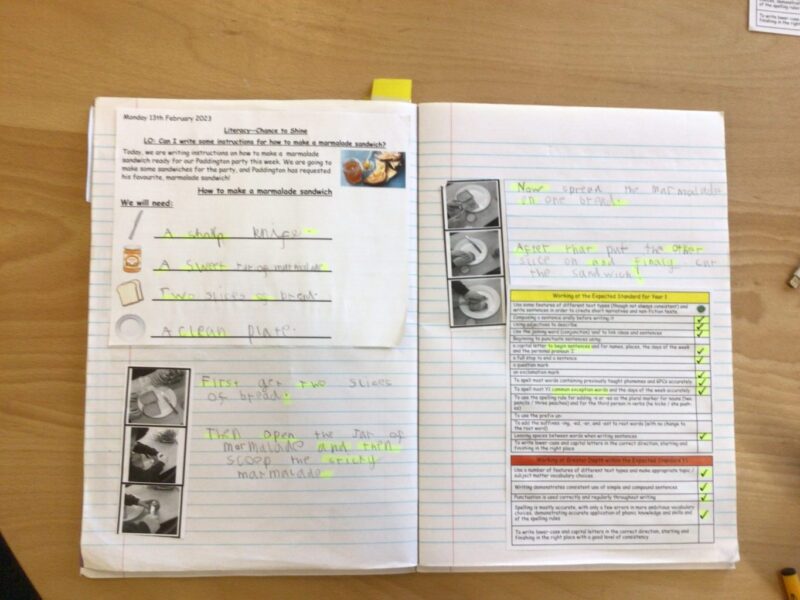 Monday 13th February 2023
Literacy--Chance to Shine
LO: Can I write some instructions for how to make a marmalade sandwich?
Today, we are writing instructions on how to make a marmalade
sandwich ready for our Paddington party this week. We are going to
make some sandwiches for the party, and Paddington has requested
his favourite, marmalade sandwich!
How to make a marmalade sandwich
We will need:
A sharp knife.
A sweet marmalade
Two slices of bread.
A clean plate.
First get two slices
of bread.
Then open the jar of
marmalade and then
scoop the sticky
marmalade.
Now spread the marmalade
on one bread.
After that put the other
slice on and finaly cut
the sandwich!
Working at the Expected Standard for Year 1
Use some features of different text types (though not always consistent) and
write sentences in order to create short narratives and non-fiction texts
Composing a sentence orally before writing it
Using adjectives to describe
Use the joining word (conjunction) 'and' to link ideas and sentences
Beginning to punctuate sentences using:
a capital letter to begin sentences and for names, places, the days of the week
and the personal pronoun I
a full stop to end a sentence
a question mark
an exclamation mark
To spell most words containing previously taught phonemes and GPCs accurately
To spell most Y1 common exception words and the days of the week accurately
To use the spelling rule for adding -s or -es as the plural marker for nouns
and for the third person in verbs
To use the prefix un-
To add the suffixes -ing, -ed, -er, and -est to root words (with no change to
the root word)
Leaving spaces between words when writing sentences
To write lower-case and capital letters in the correct direction, starting and
finishing in the right place
Working at Greater Depth within the Expected Standard Y1
Use a number of features of different text types and make appropriate topic /
subject matter vocabulary choices
Writing demonstrates consistent use of simple and compound sentences
Punctuation is used correctly and regularly throughout writing
Spelling is mostly accurate, with only a few errors in more ambitious vocabulary
choices, demonstrating accurate application of phonic knowledge and skills and
of the spelling rules
To write lower-case and capital letters in the correct direction, starting and
finishing in the right place with a good level of consistency